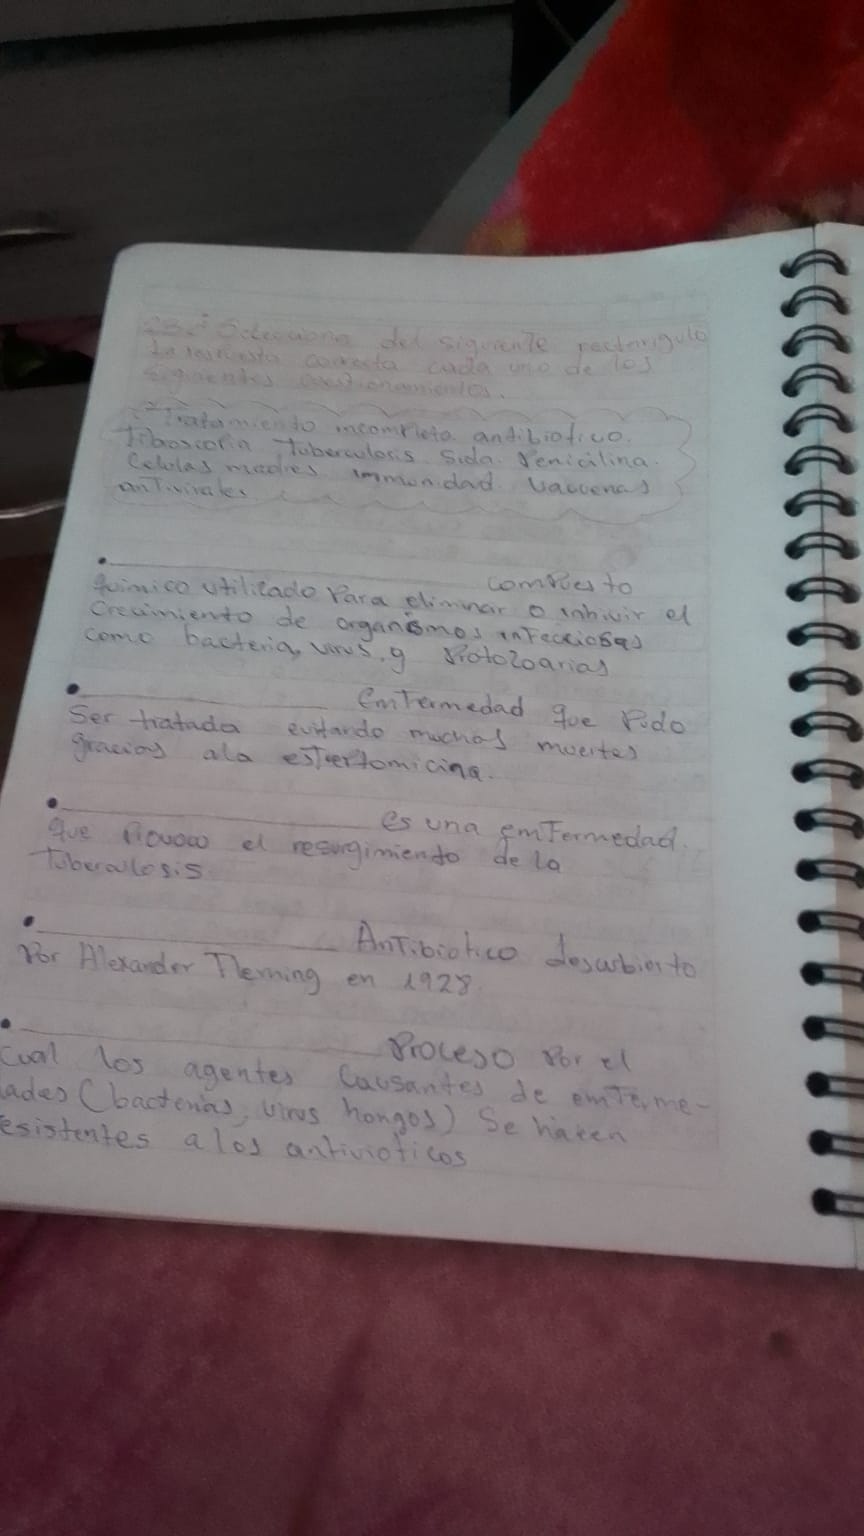 Selecciona del siguiente rectangulo
la respuesta correcta cada uno de los
siguientes cuestionamientos.
Tratamiento incompleto. antibiotico.
Tuberculosis. Sida. Penicilina.
Celulas madres immunidad Vaccenas
antivirales
• ____________ compuesto
quimico utilizado para eliminar o inhivir el
Crecimiento de organismos infecciosas
como bacteria, virus, y Protozoarias
• ____________ enfermedad que Pudo
Ser tratada evitando muchas muertes
gracias ala
• ____________ es una emfermedad.
que Provoco el resurgimiento de la
Tuberculosis
• ____________ Antibiotico descubierto
Por Alexander Fleming en 1928.
• ____________ Proceso Por el
Cual los agentes Causantes de emferme-
ades (bacterias, virus hongos) Se hacen
esistentes a los antivioticos